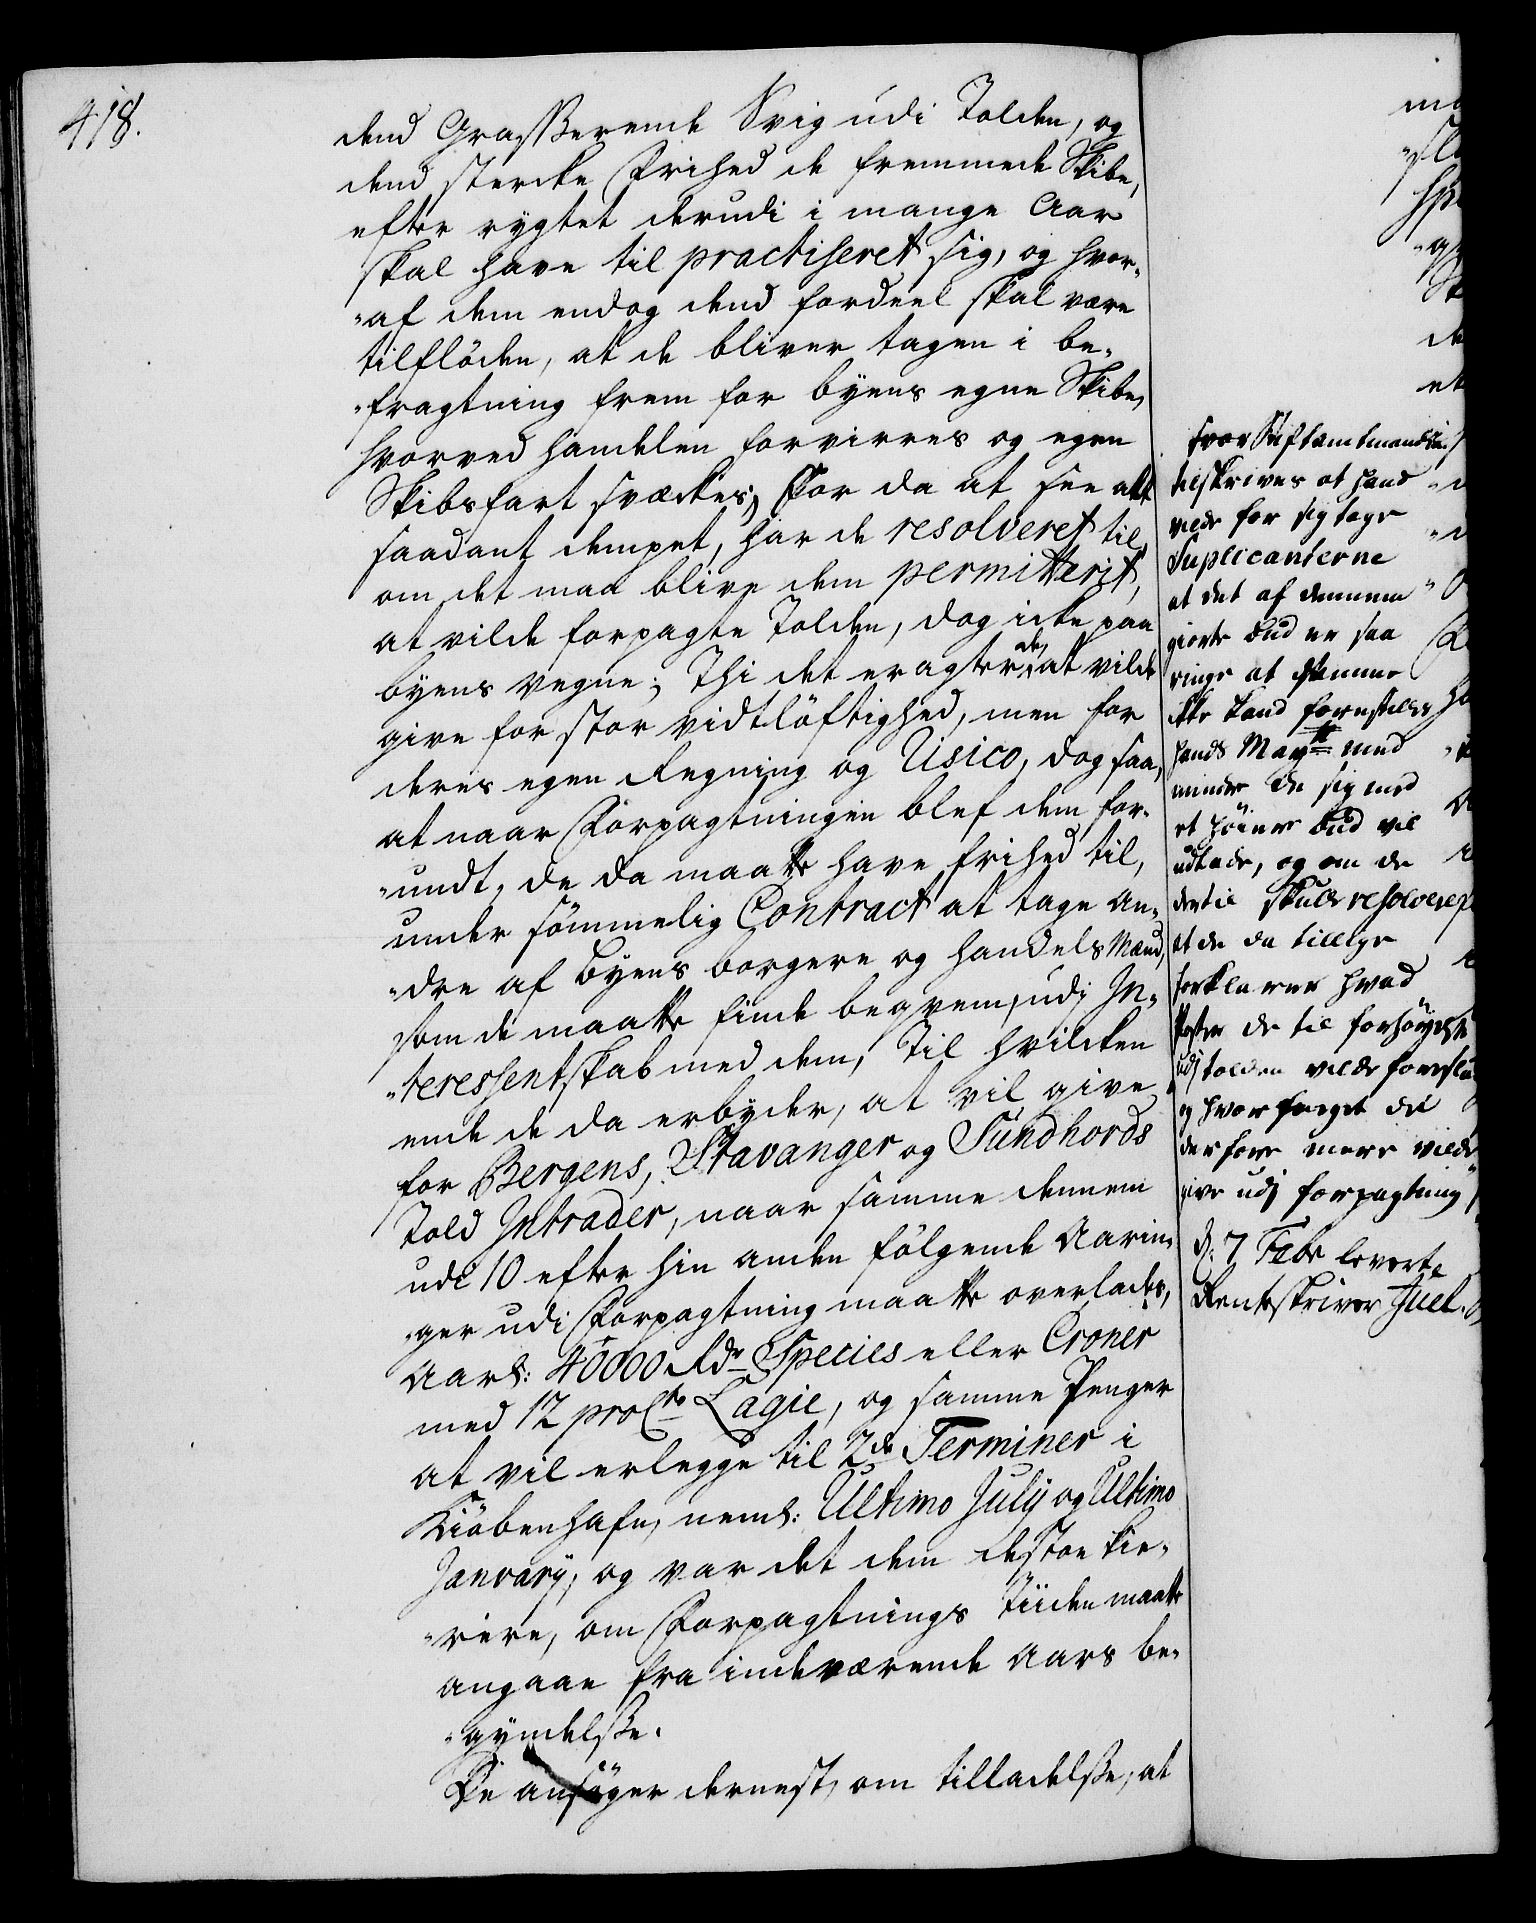 418.
dend Grasserende Svig udi Tolden, og
dend stercke Frihed de fremmede Skibe,
efter rygtet derudi i mange Aar
skal have til practiseret sig, og hvor-
"af dem endog dend fordeel skal være
tilflöden, at de bliver tagen i be-
"fragtning frem for byens egne Skibe,
hvorved handelen forvirres og egen
Skibsfart svæckes; For da at see alt
saadant dempet, har de resolveret til,
om det maa blive dem permitterit,
at vilde forpagte Tolden, dog icke paa
byens vegne; Thi det eragter de, at vilde
give for stor vidtlöftighed, men for
deres egen Regning og Risico, dog saa,
at naar Forpagtningen blef dem for-
"undt, de da maatte have frihed til,
under sömmelig Contract at tage an-
"dre af Byens borgere og handels Mænd,
som de maatte finde beqvem, udj In-
"teressentskab med dem, Til hvilcken
ende de da erbyder, at vil give
for Bergens, Stavanger og Sundhords
Told Intrader, naar samme dennem
udi 10 efter hin anden fölgende Aarin-
"ger udi Forpagtning maatte overlades,
Aarl: 40000 Rdr Species eller Croner
med 12 proCto Lagie, og samme Penger
at vil erlegge til 2de Terminer i
Kiöbenhafn, neml: Ultimo July og Ultimo
January, og var det dem destoe kie-
"rere, om Forpagtnings Tiiden maatte
angaae fra indeværende Aars be-
"gyndelsse.
De ansöger dernest, om tilladelsse, at
tilskrives at hand
vilde for sig tage
Suplicanterne
at det af dennem
giorte bud er saa
ringe at samme
ikke kand forestilles
hands Maytt med
mindre de sig med
et höiere bud vil
udlade, og om de
dertil skulde resolvere
at de da tillige
forklarer hvad
Poster de til forhöyelse
udj tolden vilde foreslaa
og hvor meget de
derfore mere vilde
give udj forpagtning
d: 7 Febr leverte
Rentskriver Juel.